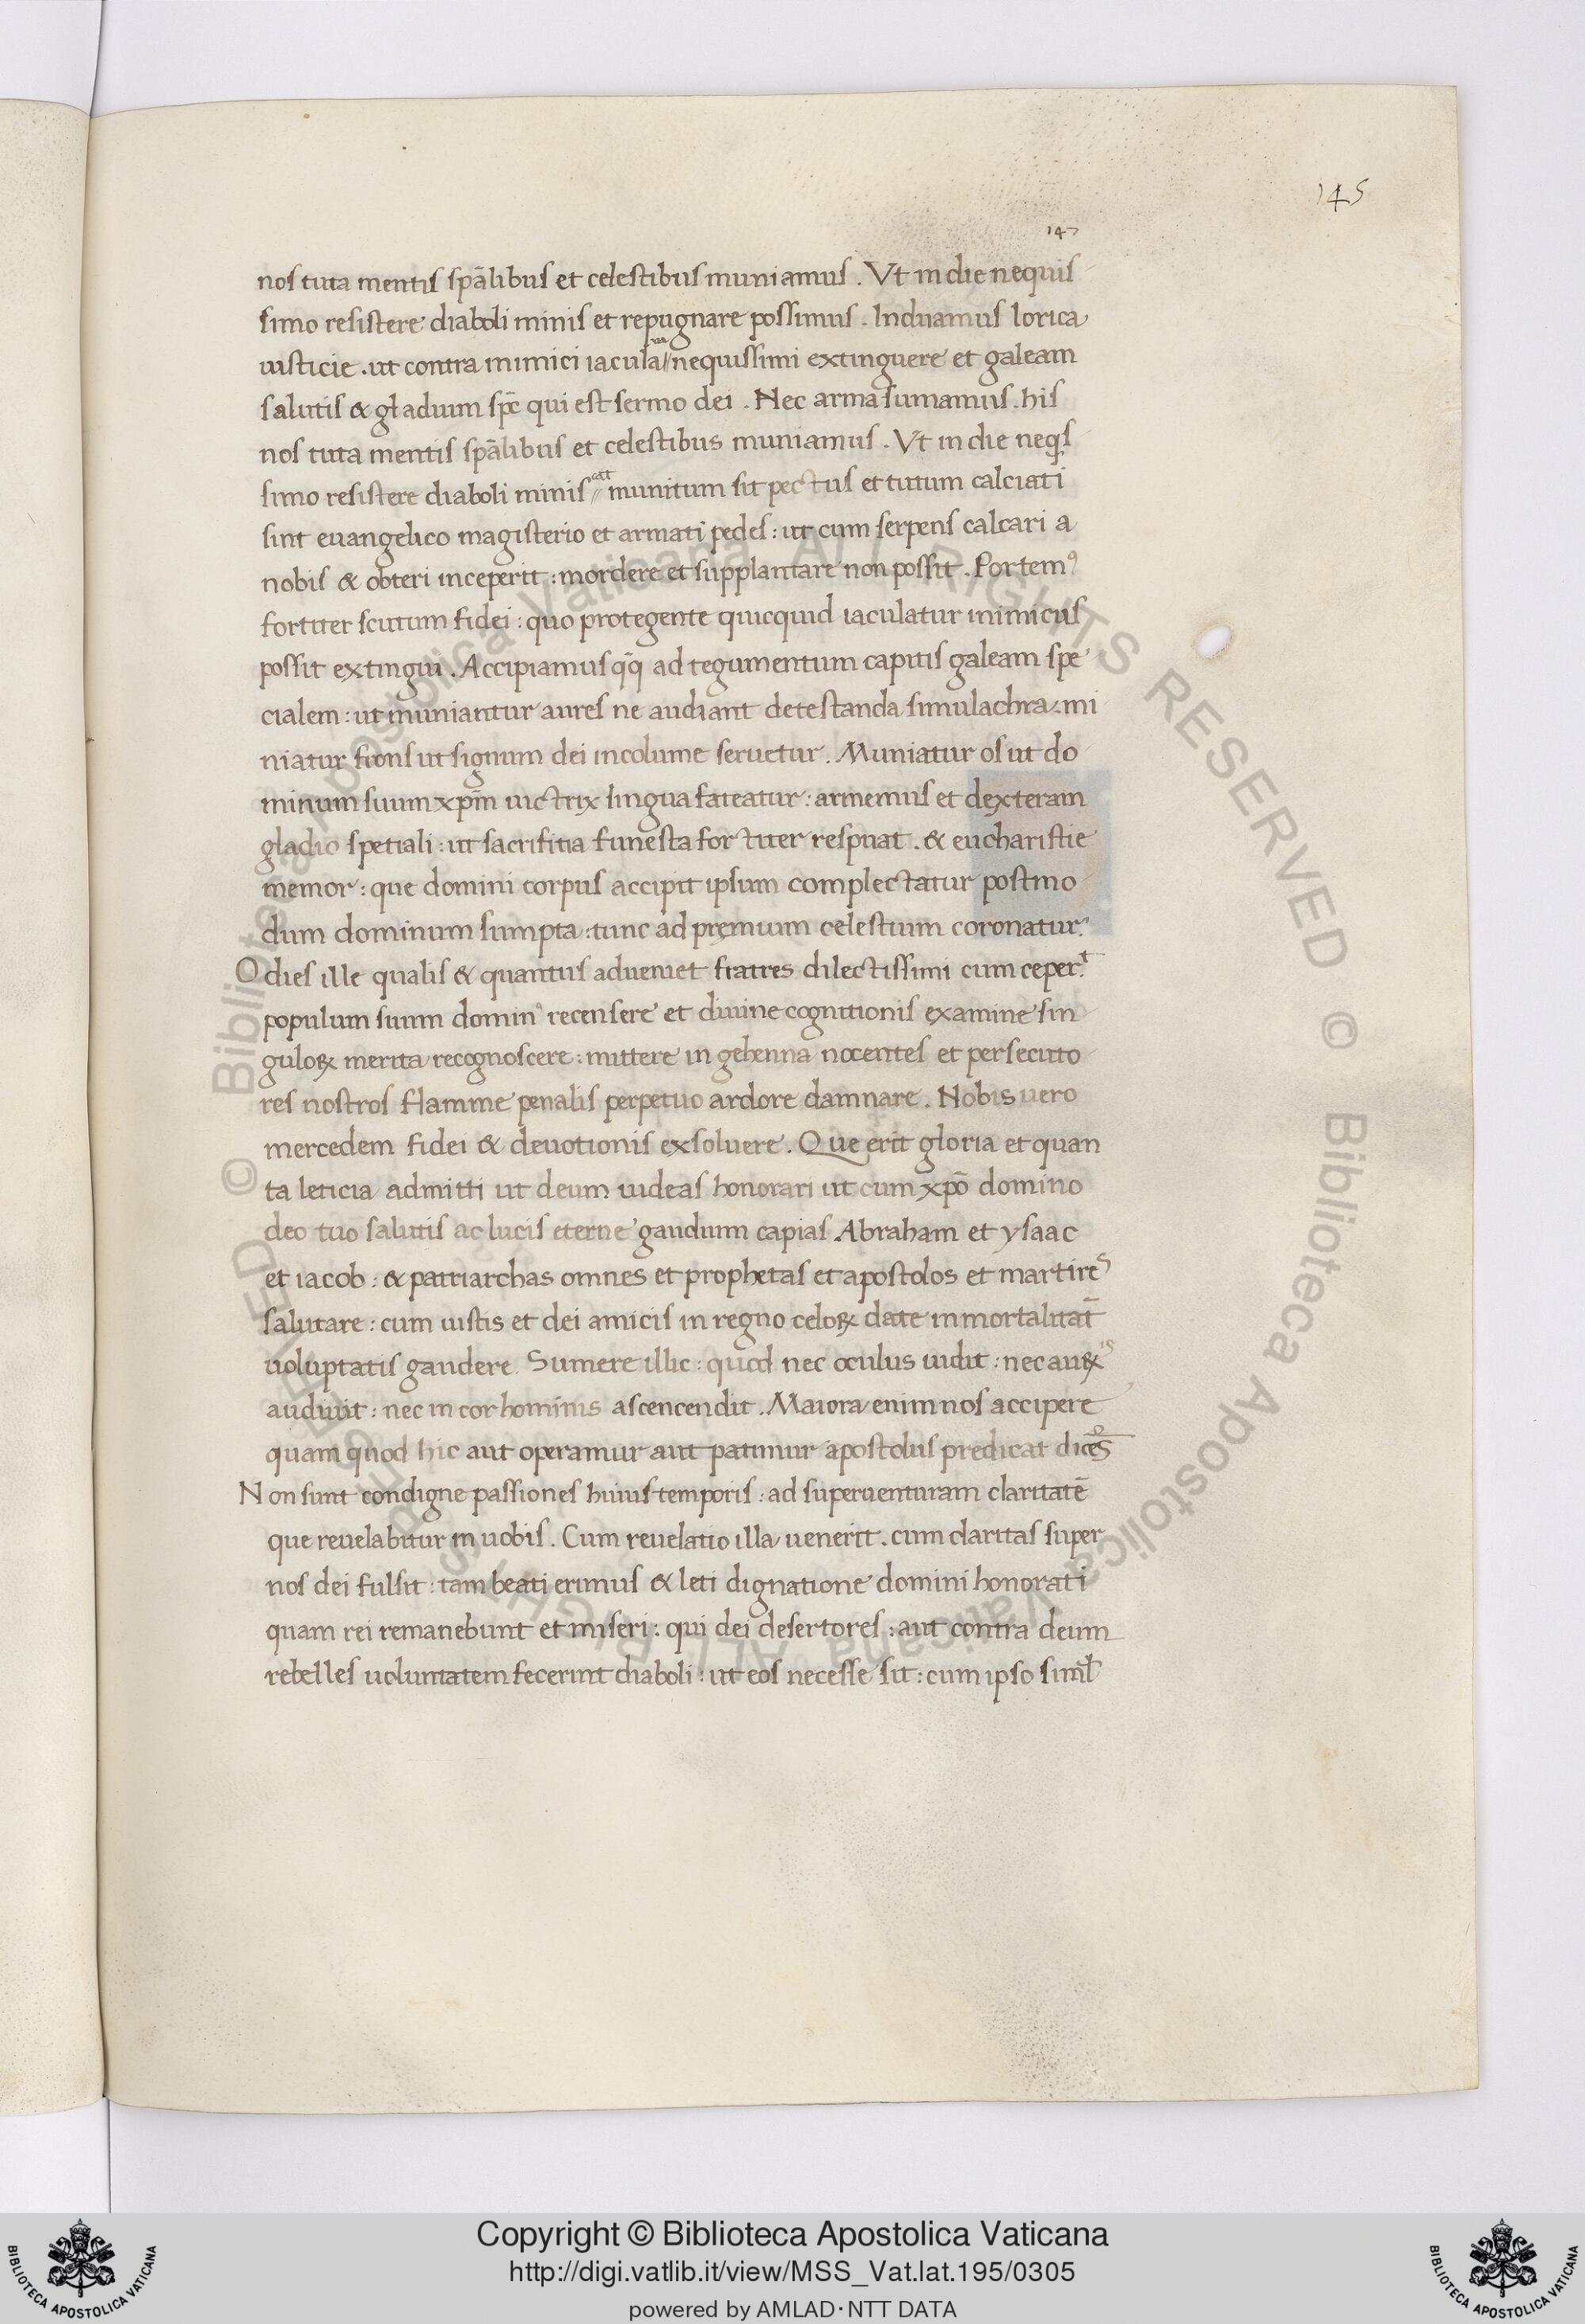 145
147
nos tuta mentis sp̄alibus et celestibus muniamus . Vt in die nequis
simo resistere diaboli minis et repugnare possimus . Induamus lorica
iusticie . ut contra inimici iacula // nequissimi extinguere et galeam
salutis & gladium sp̄c qui est sermo dei . Nec arma sumamus . his
nos tuta mentis sp̄alibus et celestibus muniamus . Vt in die neq̄s
simo resistere diaboli minis // munitum sit pectus et tutum calciati
sint euangelico magisterio et armati pedes : ut cum serpens calcari a
nobis & obteri inceperit : mordere et supplantare non possit . Portem⁹
fortiter scutum fidei : quo protegente quicquid iaculatur inimicus
possit extingui . Accipiamus q̄q̄ ad tegumentum capitis galeam spe
cialem : ut muniantur aures ne audiant detestanda simulachra . mi
niatur frons ut signum dei incolume seruetur . Muniatur os ut do
minum suum xp̄m uictrix lingua fateatur : armemus et dexteram
gladio spetiali : ut sacrifitia funesta fortiter respuat . & eucharistie
memor : que domini corpus accipit ipsum complectatur postmo
dum dominum sumpta : tunc ad premium celestium coronatur .
O dies ille qualis & quantus adueniet fratres dilectissimi cum ceper.ᵗ
populum suum domin⁹ recensere et diuine cognitionis examine sin
guloꝝ merita recognoscere : mittere in gehenna nocentes et persecuto
res nostros flamme penalis perpetuo ardore damnare . Nobis uero
mercedem fidei & deuotionis exsoluere . Que erit gloria et quan
ta leticia admitti ut deum uideas honorari ut cum xp̄o domino
deo tuo salutis ac lucis eterne gaudium capias . Abraham et ysaac
et iacob : & patriarchas omnes et prophetas et apostolos et martires
salutare : cum iustis et dei amicis in regno celoꝝ date inmortalitat̄
uoluptatis gaudere . Sumere illic : quod nec oculus uidit : nec auꝝⁱˢ
audiuit : nec in cor hominis ascencendit . Maiora enim nos accipere
quam quod hic aut operamur aut patimur apostolus predicat dices̄
Non sunt condigne passiones huius temporis : ad superuenturam claritatē
que reuelabitur in uobis . Cum reuelatio illa uenerit . cum claritas super
nos dei fulsit : tam beati erimus & leti dignatione domini honorati
quam rei remanebunt et miseri : qui dei desertores : aut contra deum
rebelles uoluntatem fecerint diaboli : ut eos necesse sit : cum ipso simƚ
© Biblioteca Apostolica Vaticana ALL RIGHTS RESERVED © Biblioteca Apostolica Vaticana ALL RIGHTS RESERVED
Copyright © Biblioteca Apostolica Vaticana
http://digi.vatlib.it/view/MSS_Vat.lat.195/0305
powered by AMLAD・NTT DATA
BIBLIOTECA APOSTOLICA VATICANA
BIBLIOTECA APOSTOLICA VATICANA